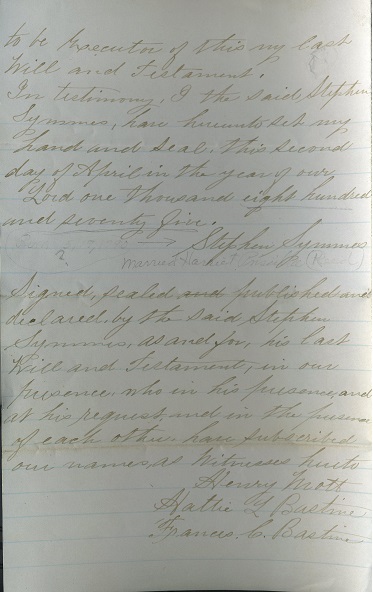 to be Executor of this my last
Will and Testament.
In testimony, I the said, Stephen
Symmes, have hereunto set my
hand and seal, this second
day of April in the year of our
Lord one thousand eight hundred
and seventy five.
Stephen Symmes
?
Married Harriet (Reed)
Signed, sealed and published and
declared, by the said Stephen
Symmes, as and for, his last
Will and Testament, in our
presence, who in his presence, and
at his request, and in the presence
of each other, have subscribed
our names, as Witnesses hereto
Henry Mott
Hattie L Bastine
Frances. C. Bastine